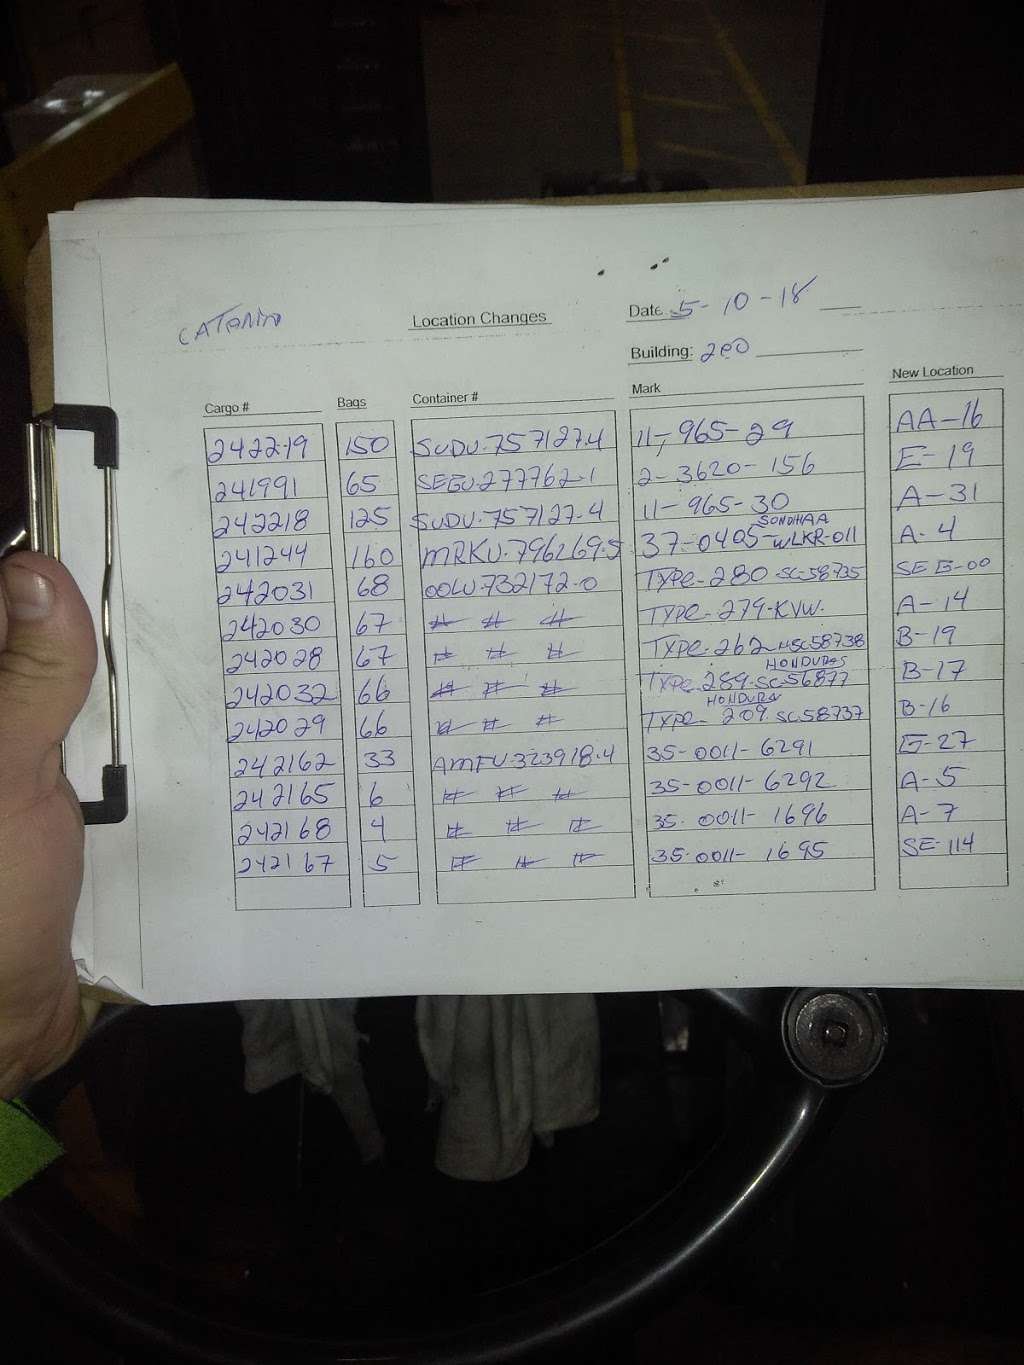 Location Changes
Date 5-10-18
Building: 200
Cargo # Bags Container # Mark New Location
242219 150 SUDU-757127-4 11-965-29 AA-16
241991 65 SEGU-277762-1 2-3620-156 E-19
242218 125 SUDU-757127-4 11-965-30 A-31
241244 160 MRKU-796269-5 37-0405-WLKR-011 A-4
242031 68 OOLU-732172-0 TYPE-280 SC-58735
242030 67 # # # TYPE-279-KVW. A-14
242028 67 # # # TYPE-262 HSC58738 B-19
HONDURAS
242032 66 # # # TYPE-289-SC-56877 B-17
HONDURAS
242029 66 # # # TYPE-209 SC58737 B-16
242162 33 AMFU-323918-4 35-0011-6291 E-27
242165 6 # # # 35-0011-6292 A-5
242168 4 # # # 35-0011-1696 A-7
242167 5 # # # 35-0011-1695 SE-114